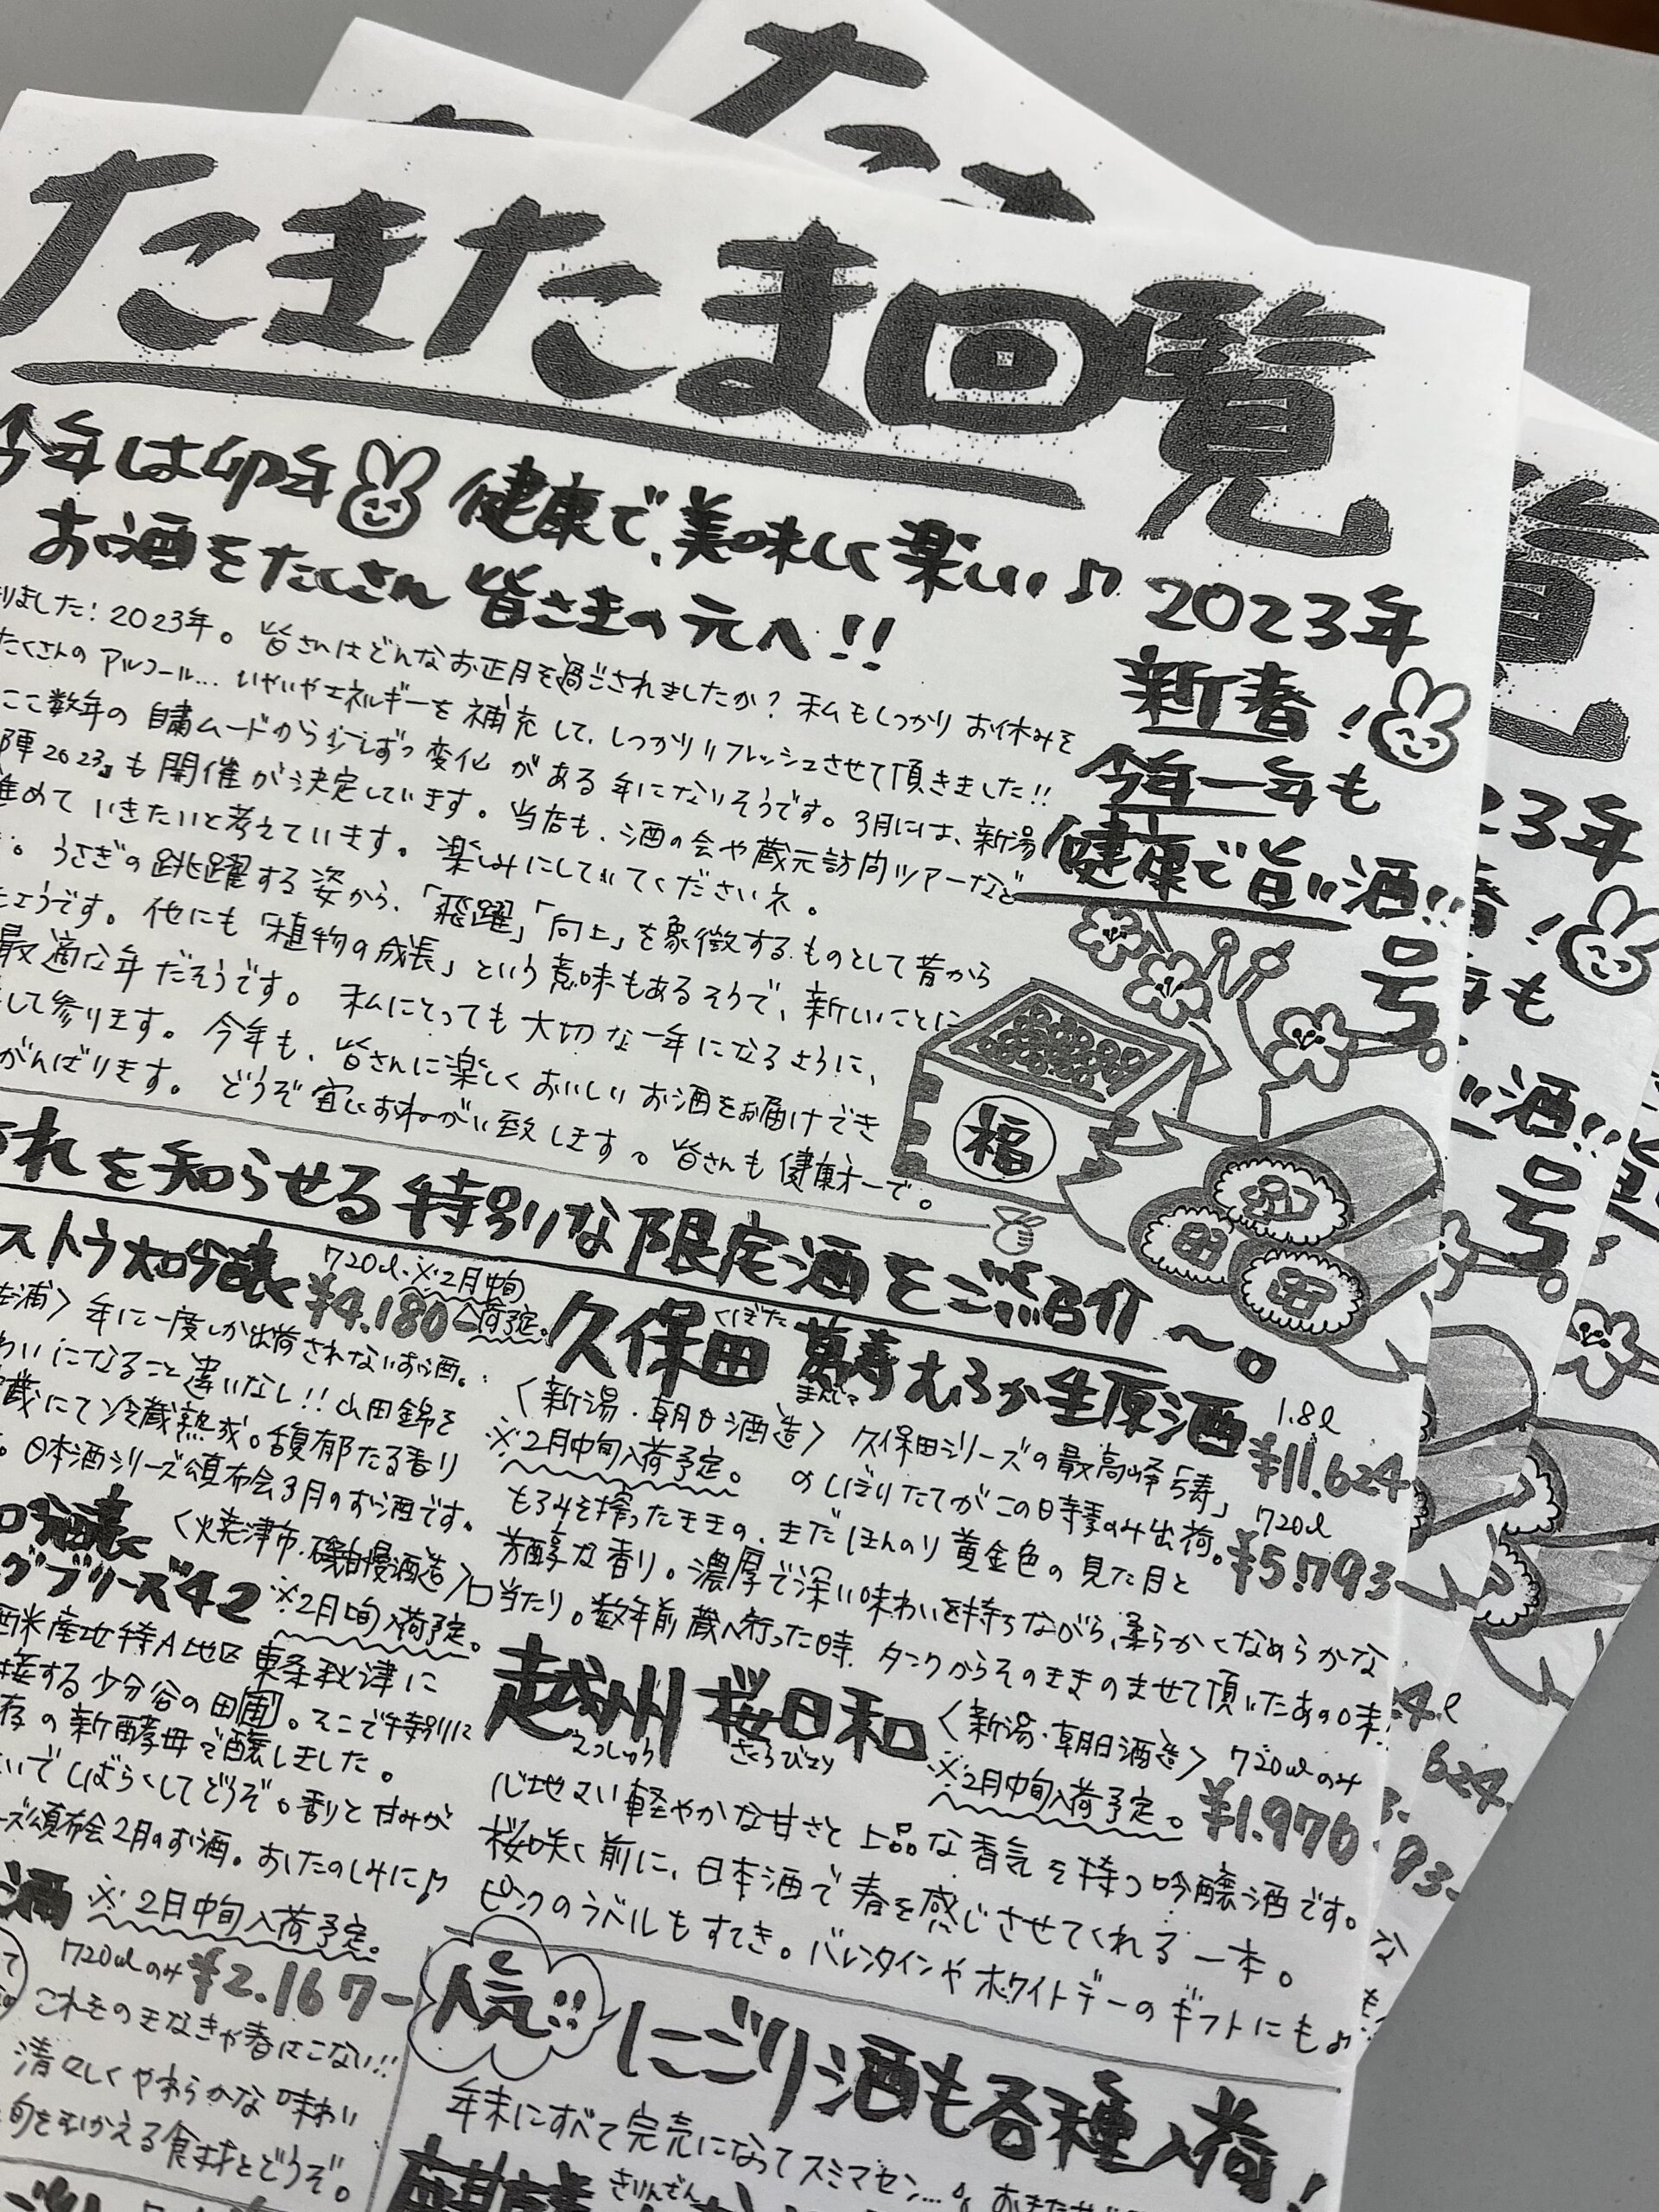 たきたま回覧
今年は卯年 健康で、美味しく楽しい♪
お酒をたくさん 皆さまの元へ!!
2023年
新春!
今年一年も
健康で旨い酒!!
号。
りました!2023年。皆さんはどんなお正月を過ごされましたか?私もしっかりお休みを
たくさんのアルコール…いやいやエネルギーを補充して、しっかりリフレッシュさせて頂きました!!
ここ数年の自粛ムードから少しずつ変化がある年になりそうです。3月には、新潟
陣2023』も開催が決定しています。当店も、酒の会や蔵元訪問ツアーなど
進めていきたいと考えています。楽しみにしていてくださいネ。
。うさぎの跳躍する姿から、「飛躍」「向上」を象徴するものとして昔から
ようです。他にも「植物の成長」という意味もあるそうで、新しいことに
最適な年だそうです。私にとっても大切な一年になるように、
して参ります。今年も、皆さんに楽しくおいしいお酒をお届けでき
がんばります。どうぞ宜しくおねがい致します。皆さんも健康オーで。
福
れを知らせる特別な限定酒をご紹介~。
ストラ大吟醸 720ml ※2月中旬入荷予定。
¥4.180-
〉年に一度しか出荷されないお酒。
わいになること違いなし!!山田錦を
蔵にて冷蔵熟成。馥郁たる香り
。日本酒シリーズ頒布会3月のお酒です。
吟醸 〈焼津市・磯自慢酒造〉
ブリーズ42 ※2月中旬入荷予定。
酒米産地特A地区 東条秋津に
接する少分谷の田圃。そこで特別に
存の新酵母で醸しました。
いでしばらくしてどうぞ。香りと甘みが
ーズ頒布会2月のお酒。おたのしみに♪
酒 ※2月中旬入荷予定。
720mlのみ ¥2.167-
これをのまなきゃ春はこない!!
清々しくやわらかな味わい
旬をむかえる食材とどうぞ。
久保田 萬寿 むろか生原酒
くぼた まんじゅ
1.8l ¥11.624-
720ml ¥5.793-
〈新潟・朝日酒造〉久保田シリーズの最高峰「萬寿」
※2月中旬入荷予定。のしぼりたてがこの時季のみ出荷。
もろみを搾ったままの、まだほんのり黄金色の見た目と
芳醇な香り。濃厚で深い味わいを持ちながら、柔らかくなめらかな
口当たり。数年前蔵へ行った時、タンクからそのままのませて頂いたあの味!
越州 桜日和 〈新潟・朝日酒造〉 720mlのみ
えっしゅう さくらびより
※2月中旬入荷予定。 ¥1.970
心地よい軽やかな甘さと上品な香気を持つ吟醸酒です。
桜咲く前に、日本酒で春を感じさせてくれる一本。
ピンクのラベルもすてき。バレンタインやホワイトデーのギフトにも♪
人気!! にごり酒も各種入荷!
年末にすべて完売になってスミマセン…。
きりんざん